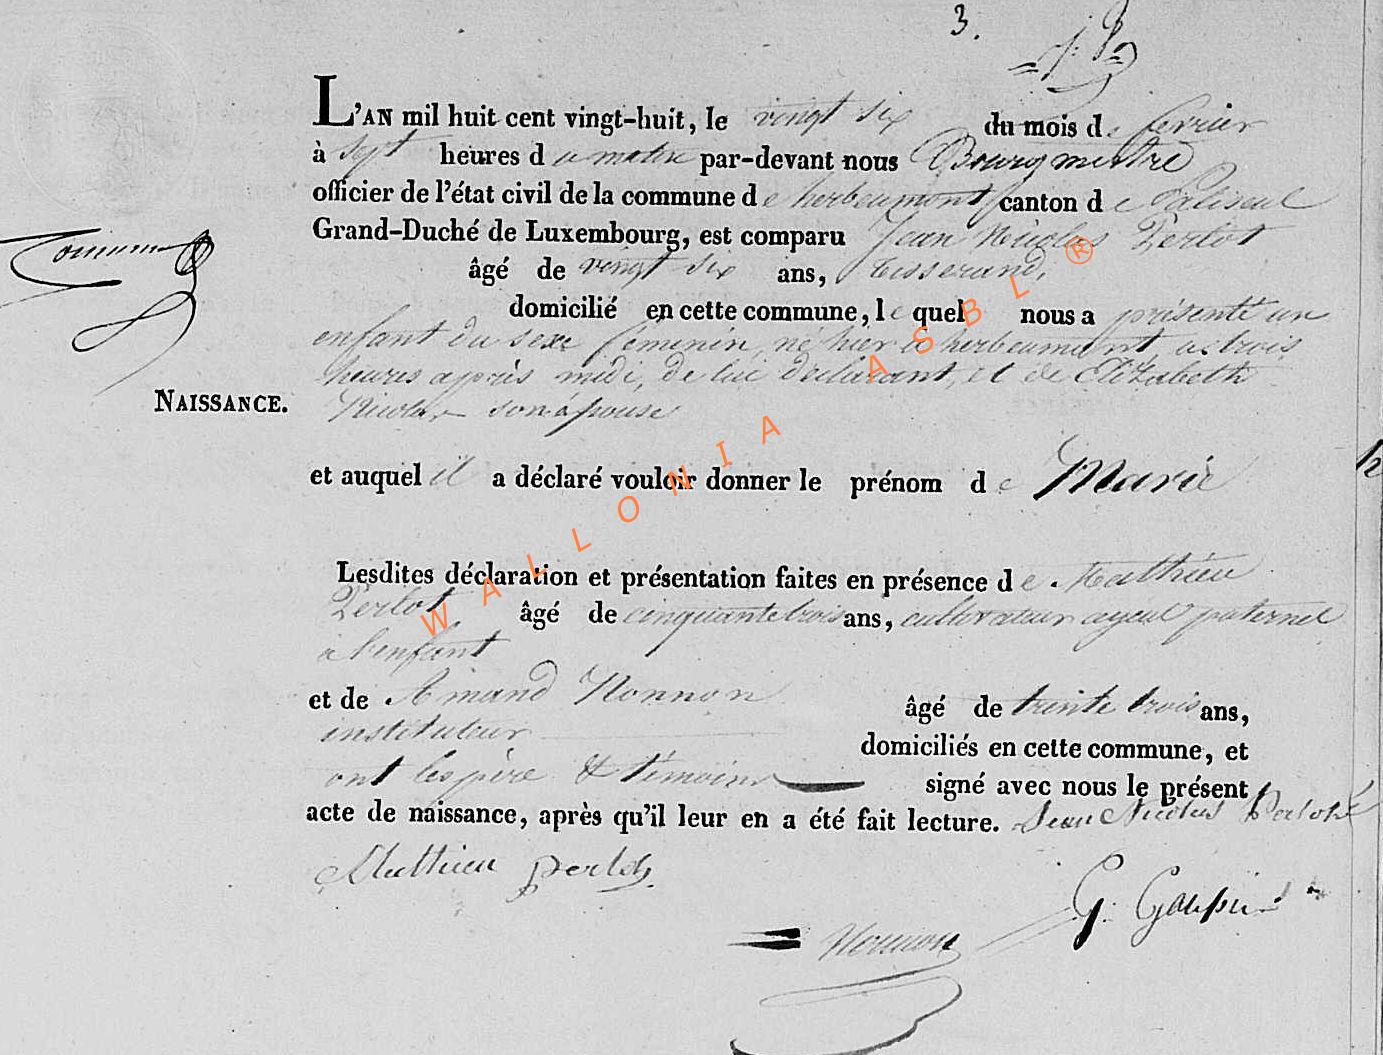 3.
L'AN mil huit cent vingt-huit, le vingt six du mois de fevrier
à sept heures du matin par-devant nous Bourgmestre
officier de l'état civil de la commune de herbeumont canton de Paliseul
Grand-Duché de Luxembourg, est comparu Jean Nicolas Perlot
âgé de vingt six ans, tisserand,
domicilié en cette commune, lequel nous a présenté un
enfant du sexe féminin, né hier à herbeumont, a trois
heures après midi, de lui déclarant, et de Elizabeth
NAISSANCE. Nicolas son épouse
et auquel il a déclaré vouloir donner le prénom de Marie
Lesdites déclaration et présentation faites en présence de Mathieu
Perlot âgé de cinquante trois ans, cultivateur ayeul paternel
à l'enfant
et de Amand Nonnon âgé de trente trois ans,
instituteur
domiciliés en cette commune, et
ont les père & témoins signé avec nous le présent
acte de naissance, après qu'il leur en a été fait lecture. Jean Nicolas Perlot
Mathieu perlot
G. Goupin
Nonnon
WALLONIA ASBL ®